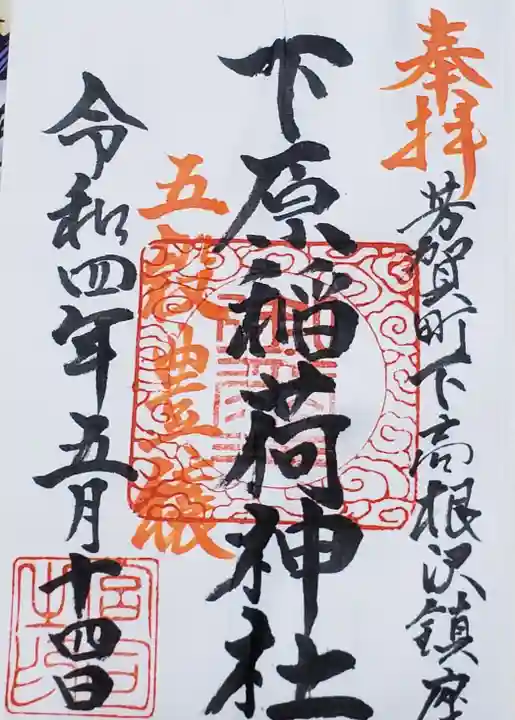 奉拝
芳賀町下高根沢鎮座
下原稲荷神社
五穀豊穣
令和四年五月十四日